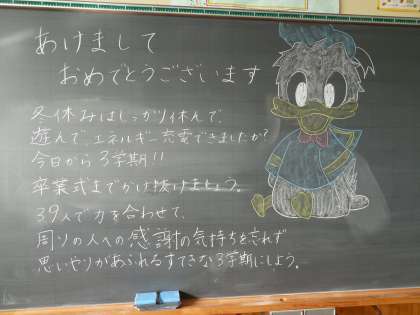 あけまして
おめでとうございます
冬休みはしっかり休んで、
遊んで、エネルギー充電できましたか?
今日から3学期!!
卒業式までかけ抜けましょう。
39人で力を合わせて、
周りの人への感謝の気持ちを忘れず
思いやりがあふれるすてきな3学期にしよう。